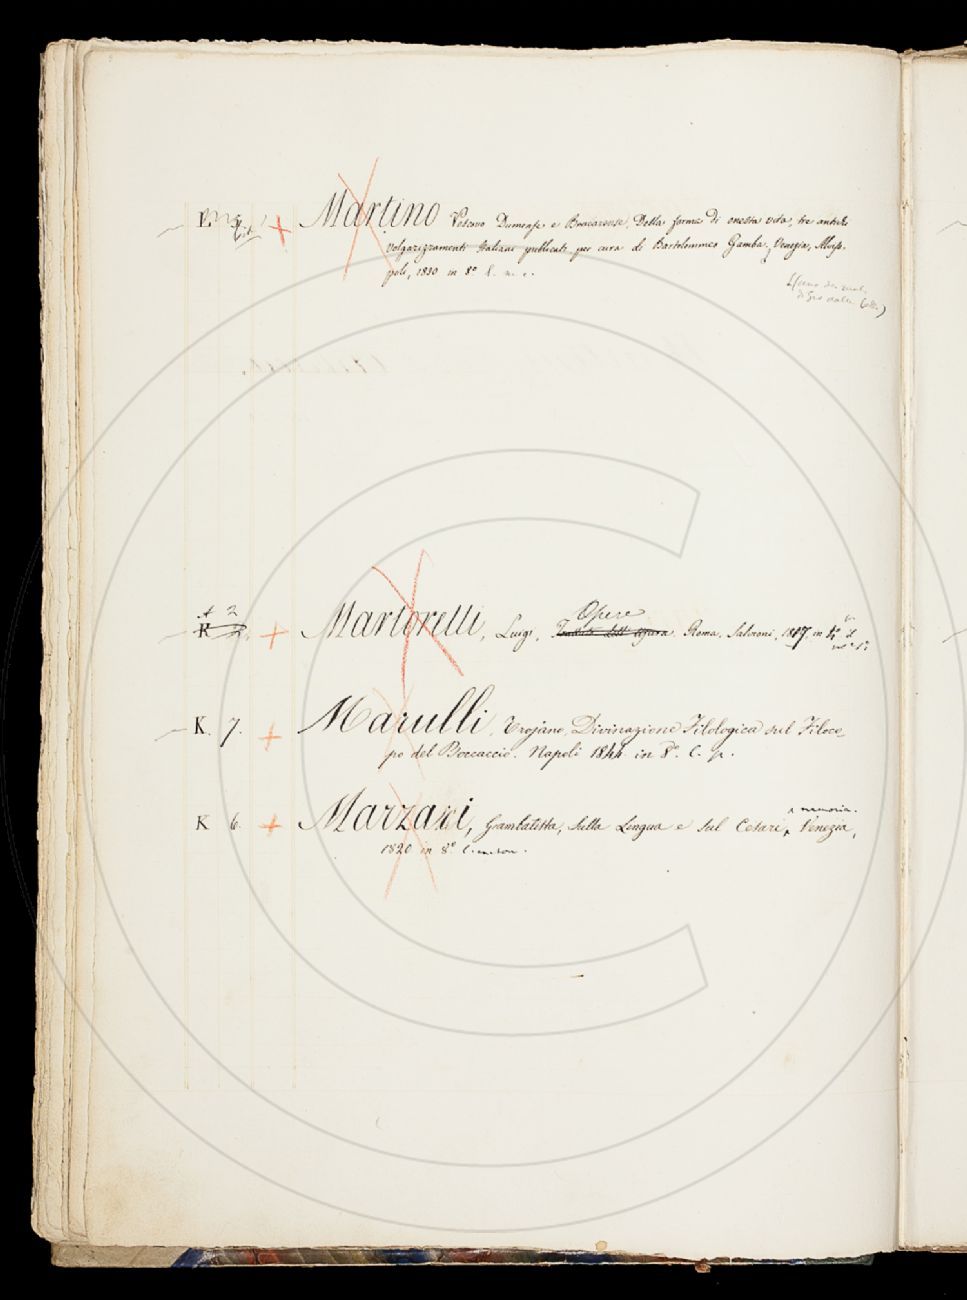 Martino Vescovo Dumense e Bracarense, Della forma di onesta vita, tre antichi
volgarizzamenti Italiani pubblicati per cura di Bartolommeo Gamba. Venezia, Alviso-
poli, 1830 in 8º
A 2
Opere
K 2. + Martorelli, Luigi, Trattato dell' Roma, Salvioni, 18 in
K. 7. + Marulli, Trojano, Divinazione Filologica sul Filoco-
po del Boccaccio. Napoli 1844 in 8º. l. p.
e memoria.
K 6. + Marzari, Giambatista, Sulla Lingua e sul Cesari, Venezia,
1820 in 8º